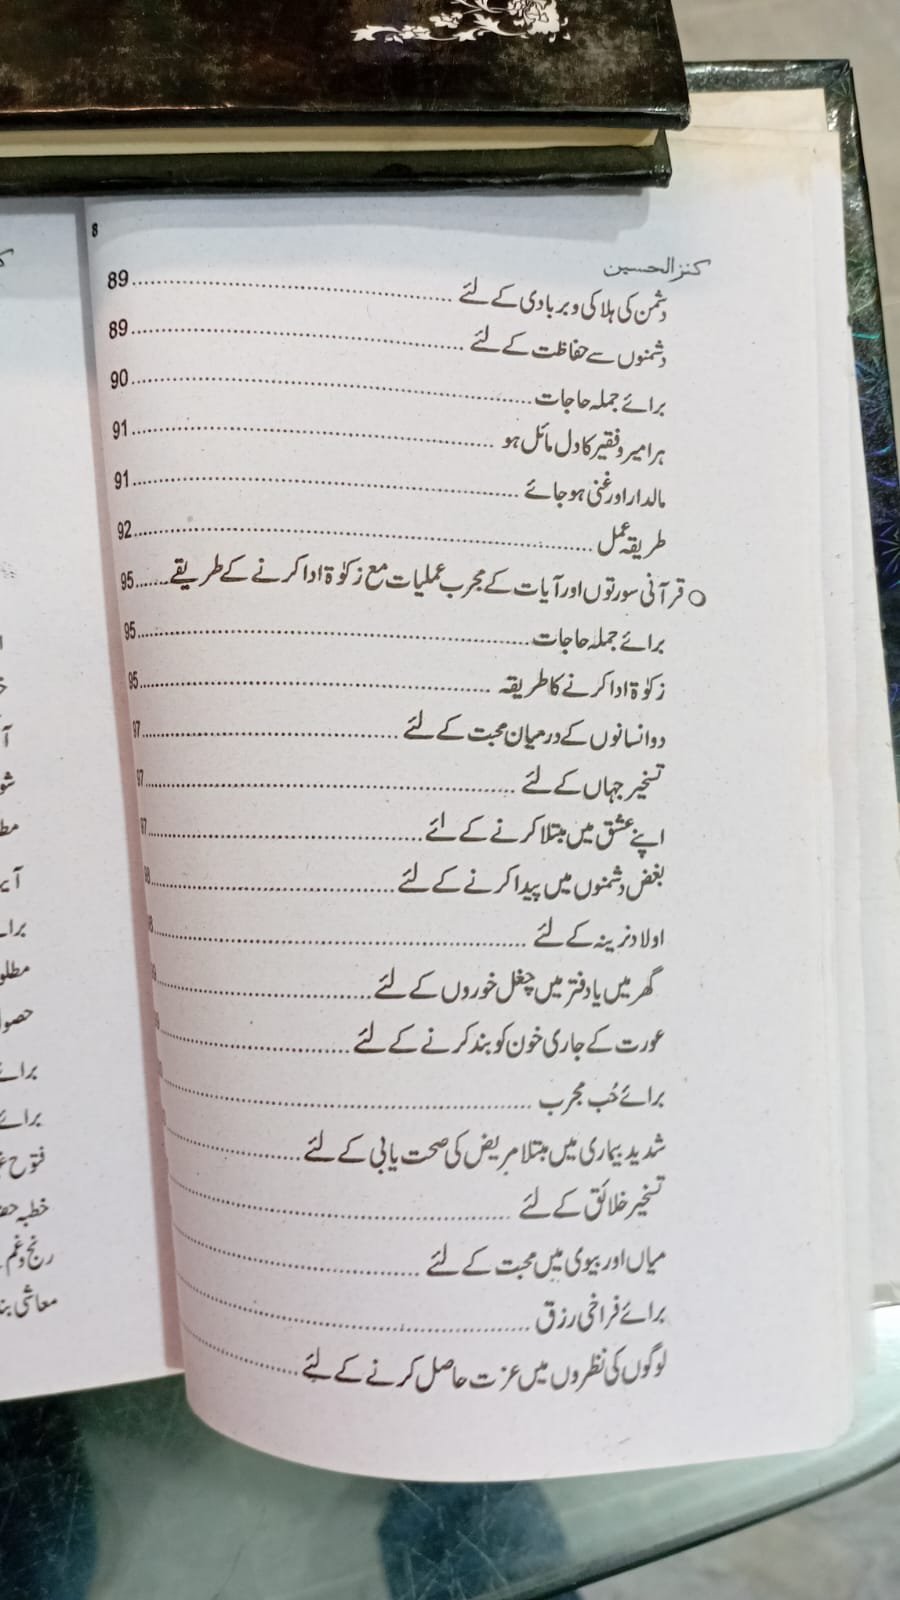 8
كنز الحسين
دشمن کی ہلاکی و بربادی کے لئے ........ 89
دشمنوں سے حفاظت کے لئے ........ 89
برائے جملہ حاجات ........ 90
ہر امیر و فقیر کا دل مائل ہو ........ 91
مالدار اور غنی ہو جائے ........ 91
طریقہ عمل ........ 92
○ قرآنی سورتوں اور آیات کے مجرب عملیات مع زکوٰۃ ادا کرنے کے طریقے ........ 95
برائے جملہ حاجات ........ 95
زکوٰۃ ادا کرنے کا طریقہ ........ 95
دو انسانوں کے درمیان محبت کے لئے ........ 97
تسخیر جہاں کے لئے ........ 97
اپنے عشق میں مبتلا کرنے کے لئے ........ 97
بغض دشمنوں میں پیدا کرنے کے لئے ........ 98
اولاد نرینہ کے لئے ........
گھر میں یا دفتر میں چغل خوروں کے لئے ........
عورت کے جاری خون کو بند کرنے کے لئے ........
برائے حُب مجرب ........
شدید بیماری میں مبتلا مریض کی صحت یابی کے لئے ........
تسخیر خلائق کے لئے ........
میاں اور بیوی میں محبت کے لئے ........
برائے فراخی رزق ........
لوگوں کی نظروں میں عزت حاصل کرنے کے لئے ........